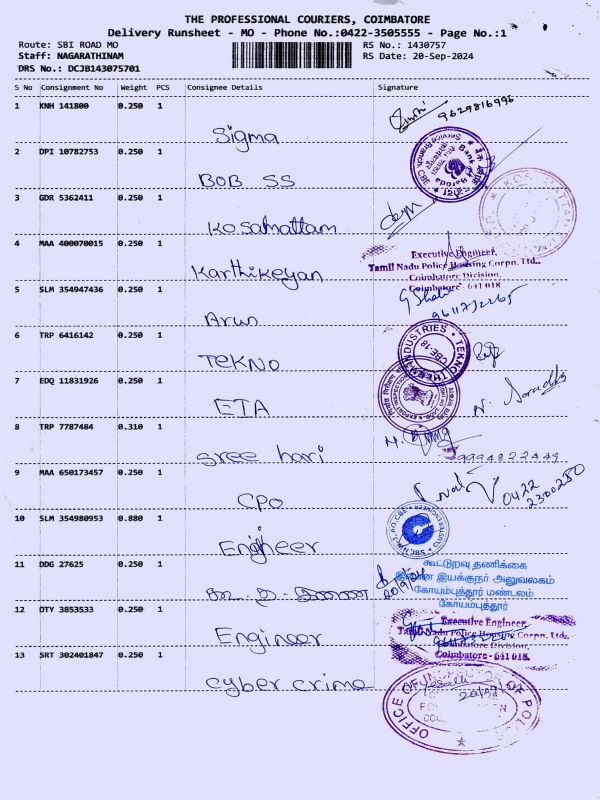 THE PROFESSIONAL COURIERS, COIMBATORE
Delivery Runsheet - MO - Phone No.:0422-3505555 - Page No.:1
Route: SBI ROAD MO
RS No.: 1430757
Staff: NAGARATHINAM
RS Date: 20-Sep-2024
DRS No.: DCJB143075701
S No Consignment No Weight PCS Consignee Details Signature
1 KNH 141800 0.250 1
9629816996
Sigma
2 DPI 10782753 0.250 1
Bank of Baroda
BOB SS
3 GDR 5362411 0.250 1
Kosamattam
4 MAA 400070015 0.250 1
Executive Engineer,
Tamil Nadu Police Housing Corpn. Ltd.,
Coimbatore Division,
Coimbatore - 641 018
Karthikeyan
5 SLM 354947436 0.250 1
Arun
6 TRP 6416142 0.250 1
CBE-18
TEKNO
7 EDQ 11831926 0.250 1
EIA
8 TRP 7787484 0.310 1
9994822449
Sree hari
9 MAA 650173457 0.250 1
0422
2300250
CPO
10 SLM 354980953 0.880 1
Engineer
11 DDG 27625 0.250 1
கூட்டுறவு தணிக்கை
இணை இயக்குநர் அலுவலகம்
கோயம்புத்தூர் மண்டலம்
கோயம்புத்தூர்
12 DTY 3853533 0.250 1
Executive Engineer
Tamil Nadu Police Housing Corpn. Ltd.,
Coimbatore Division,
Coimbatore - 641 018.
Engineer
13 SRT 302401847 0.250 1
Cyber crime